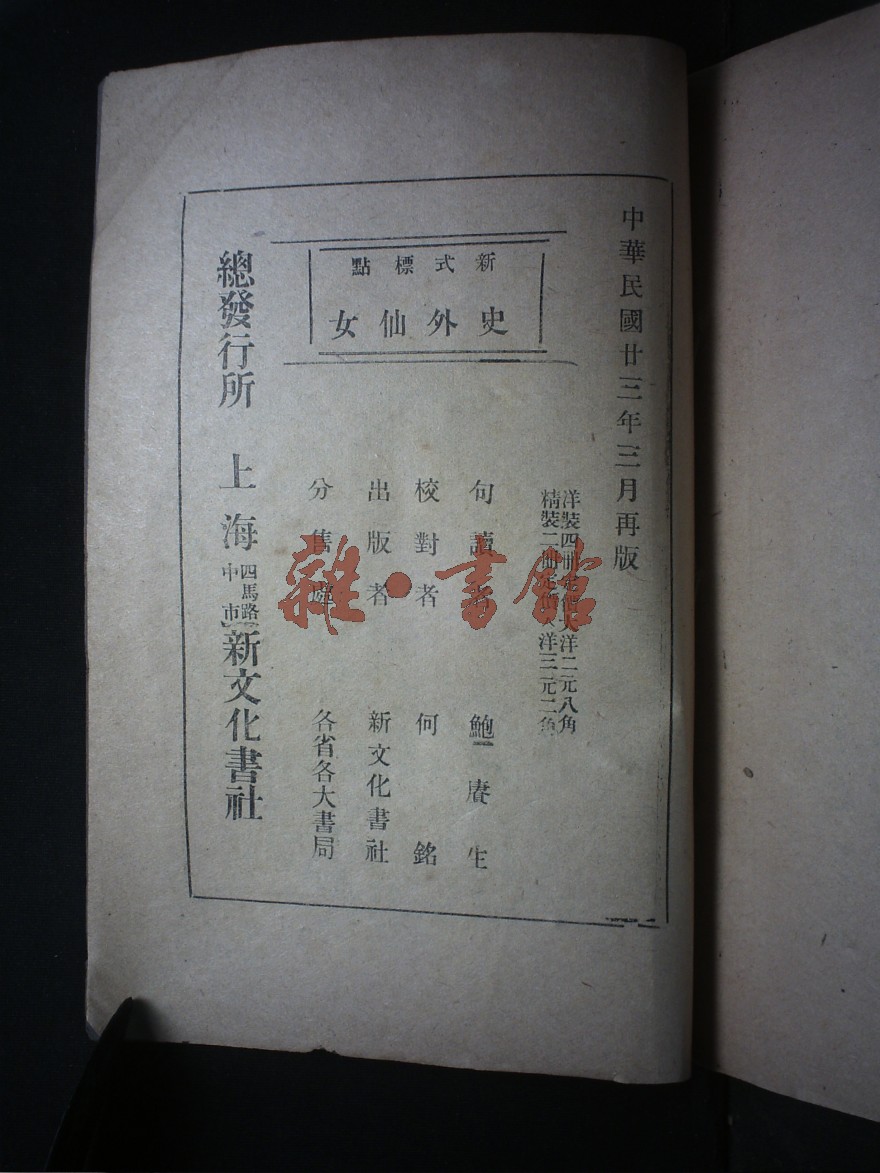 中華民國廿三年三月再版
洋裝四冊定價大洋二元八角
精裝二冊定價大洋三元二角
新式標點
史外仙女
句讀者 鮑賡生
校對者 何銘
出版者 新文化書社
分售處 各省各大書局
總發行所 上海 四馬路中市 新文化書社
雜·書館